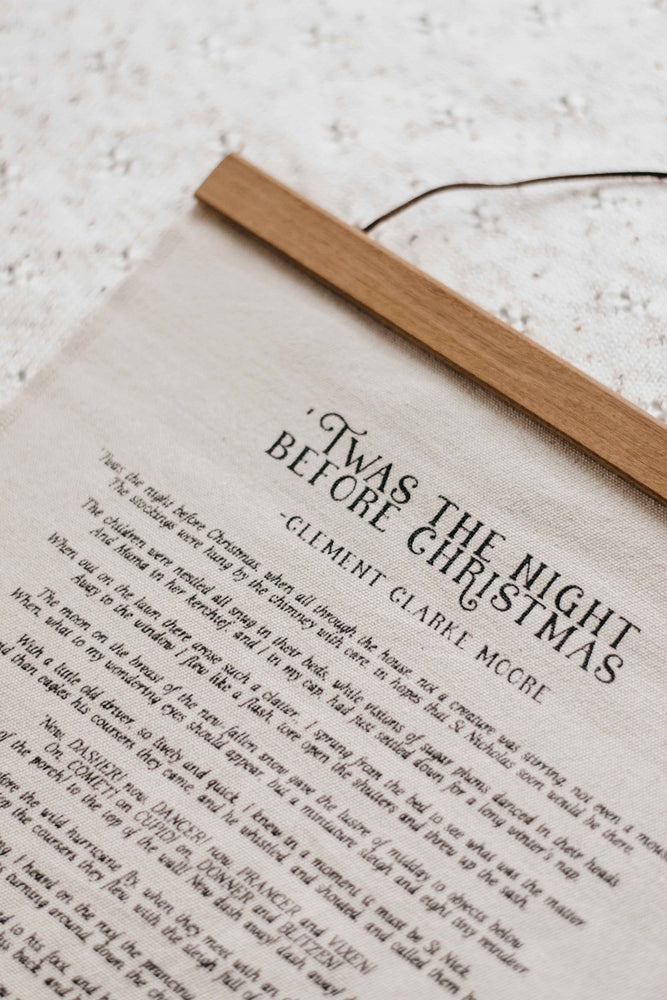 'TWAS THE NIGHT
BEFORE CHRISTMAS
-CLEMENT CLARKE MOORE
'Twas the night before Christmas, when all through the house, not a creature was stirring, not even a mouse
The stockings were hung by the chimney with care, in hopes that St. Nicholas soon would be there.
The children were nestled all snug in their beds, while visions of sugar plums danced in their heads
And Mama in her kerchief, and I in my cap, had just settled down for a long winter's nap.
When out on the lawn there arose such a clatter, I sprang from the bed to see what was the matter.
Away to the window I flew like a flash, tore open the shutters and threw up the sash.
The moon on the breast of the new fallen snow gave the lustre of midday to objects below
When, what to my wondering eyes should appear, but a miniature sleigh and eight tiny reindeer.
With a little old driver, so lively and quick, I knew in a moment it must be St Nick.
than eagles his coursers they came, and he whistled and shouted, and called them
'Now, DASHER! now, DANCER! now, PRANCER and VIXEN!
On, COMET! on CUPID! on, DONNER and BLITZEN!
of the porch! to the top of the wall! Now dash away! dash away!
the wild hurricane fly, when they meet with an
the coursers they flew, with the sleigh full of
I heard on the roof the prancing
turning around, down the
to his foot, and
back, and